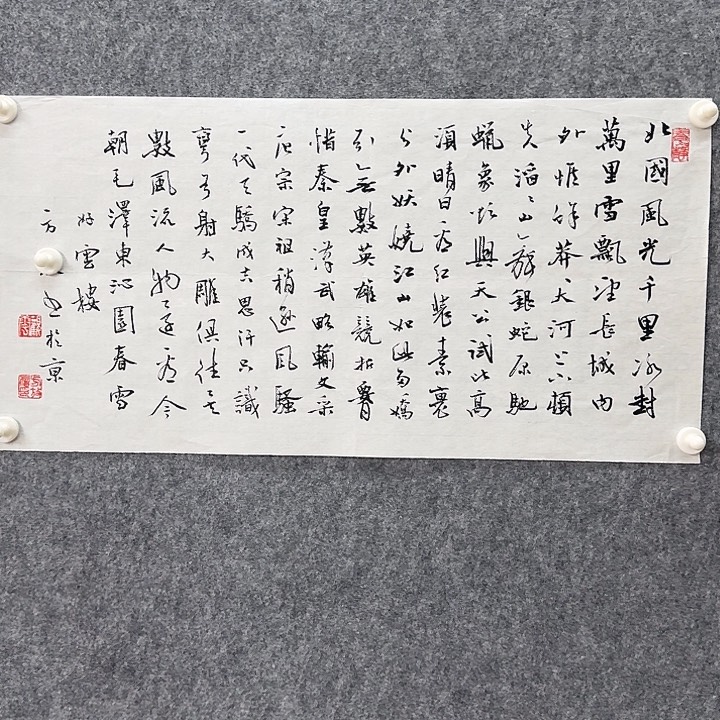 北國風光千里冰封
萬里雪飄望長城內
外惟餘莽〻大河上下頓
失滔〻山舞銀蛇原馳
蠟象欲與天公試比高
須晴日看紅裝素裹
分外妖嬈江山如此多嬌
引無數英雄競折腰
惜秦皇漢武略輸文采
唐宗宋祖稍遜風騷
一代天驕成吉思汗只識
彎弓射大雕俱往矣
數風流人物還看今
朝毛澤東沁園春雪
好雲樓
方書於京